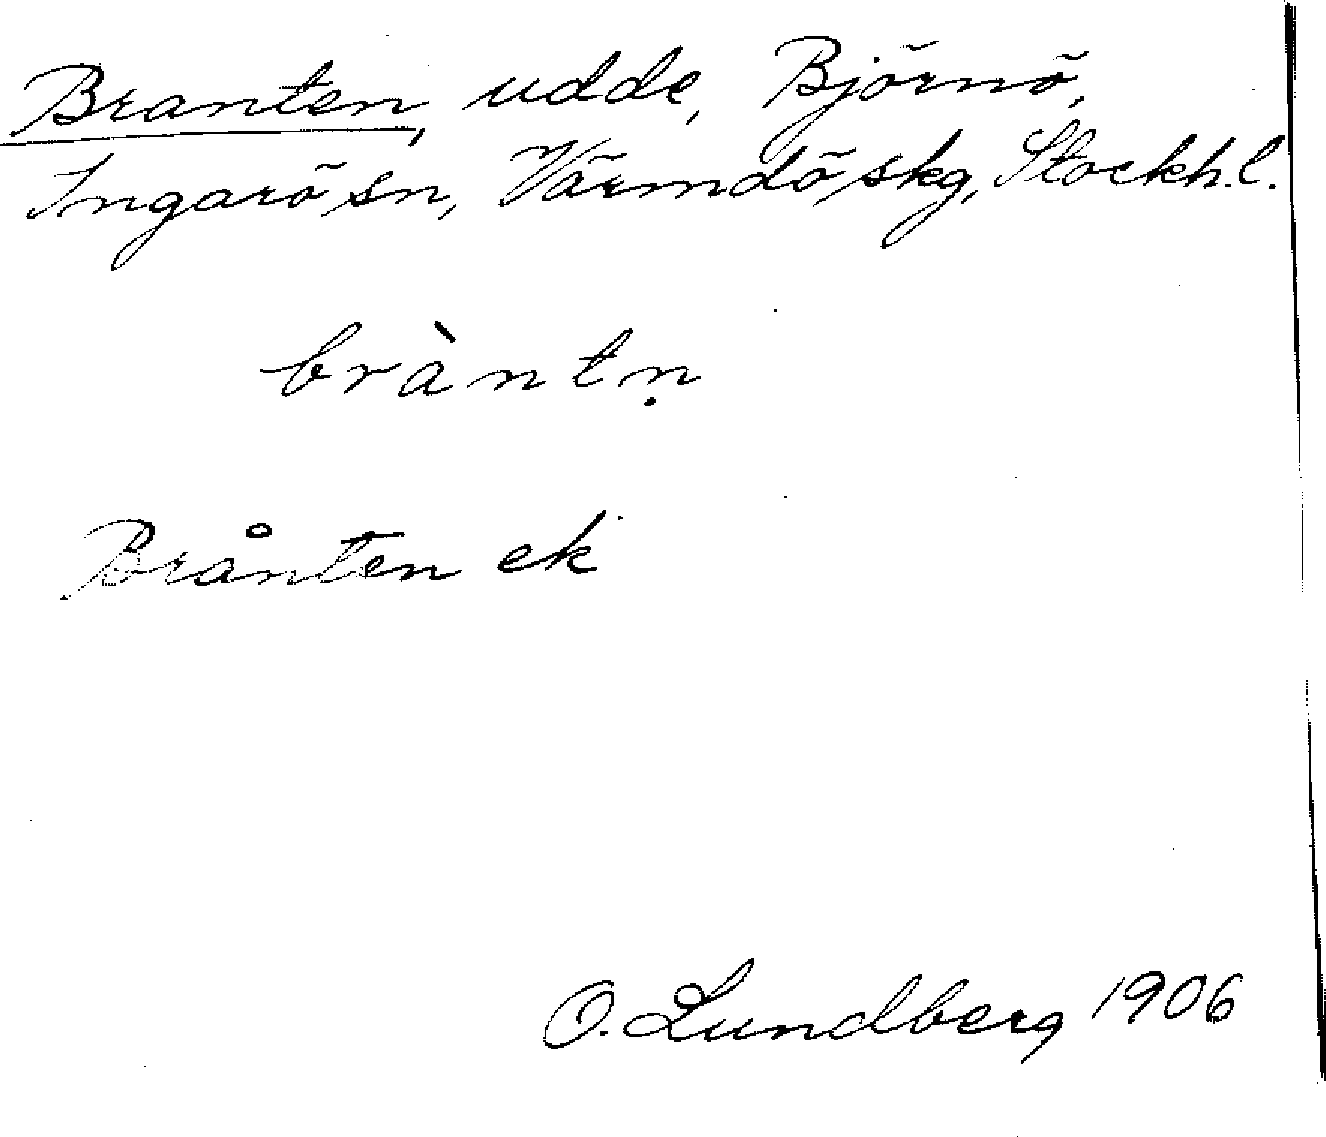 Branten, udde, Björnö,
Ingarö sn, Värmdö skg, Stockh. l.
bràntṇ
Brånten ek
O. Lundberg 1906